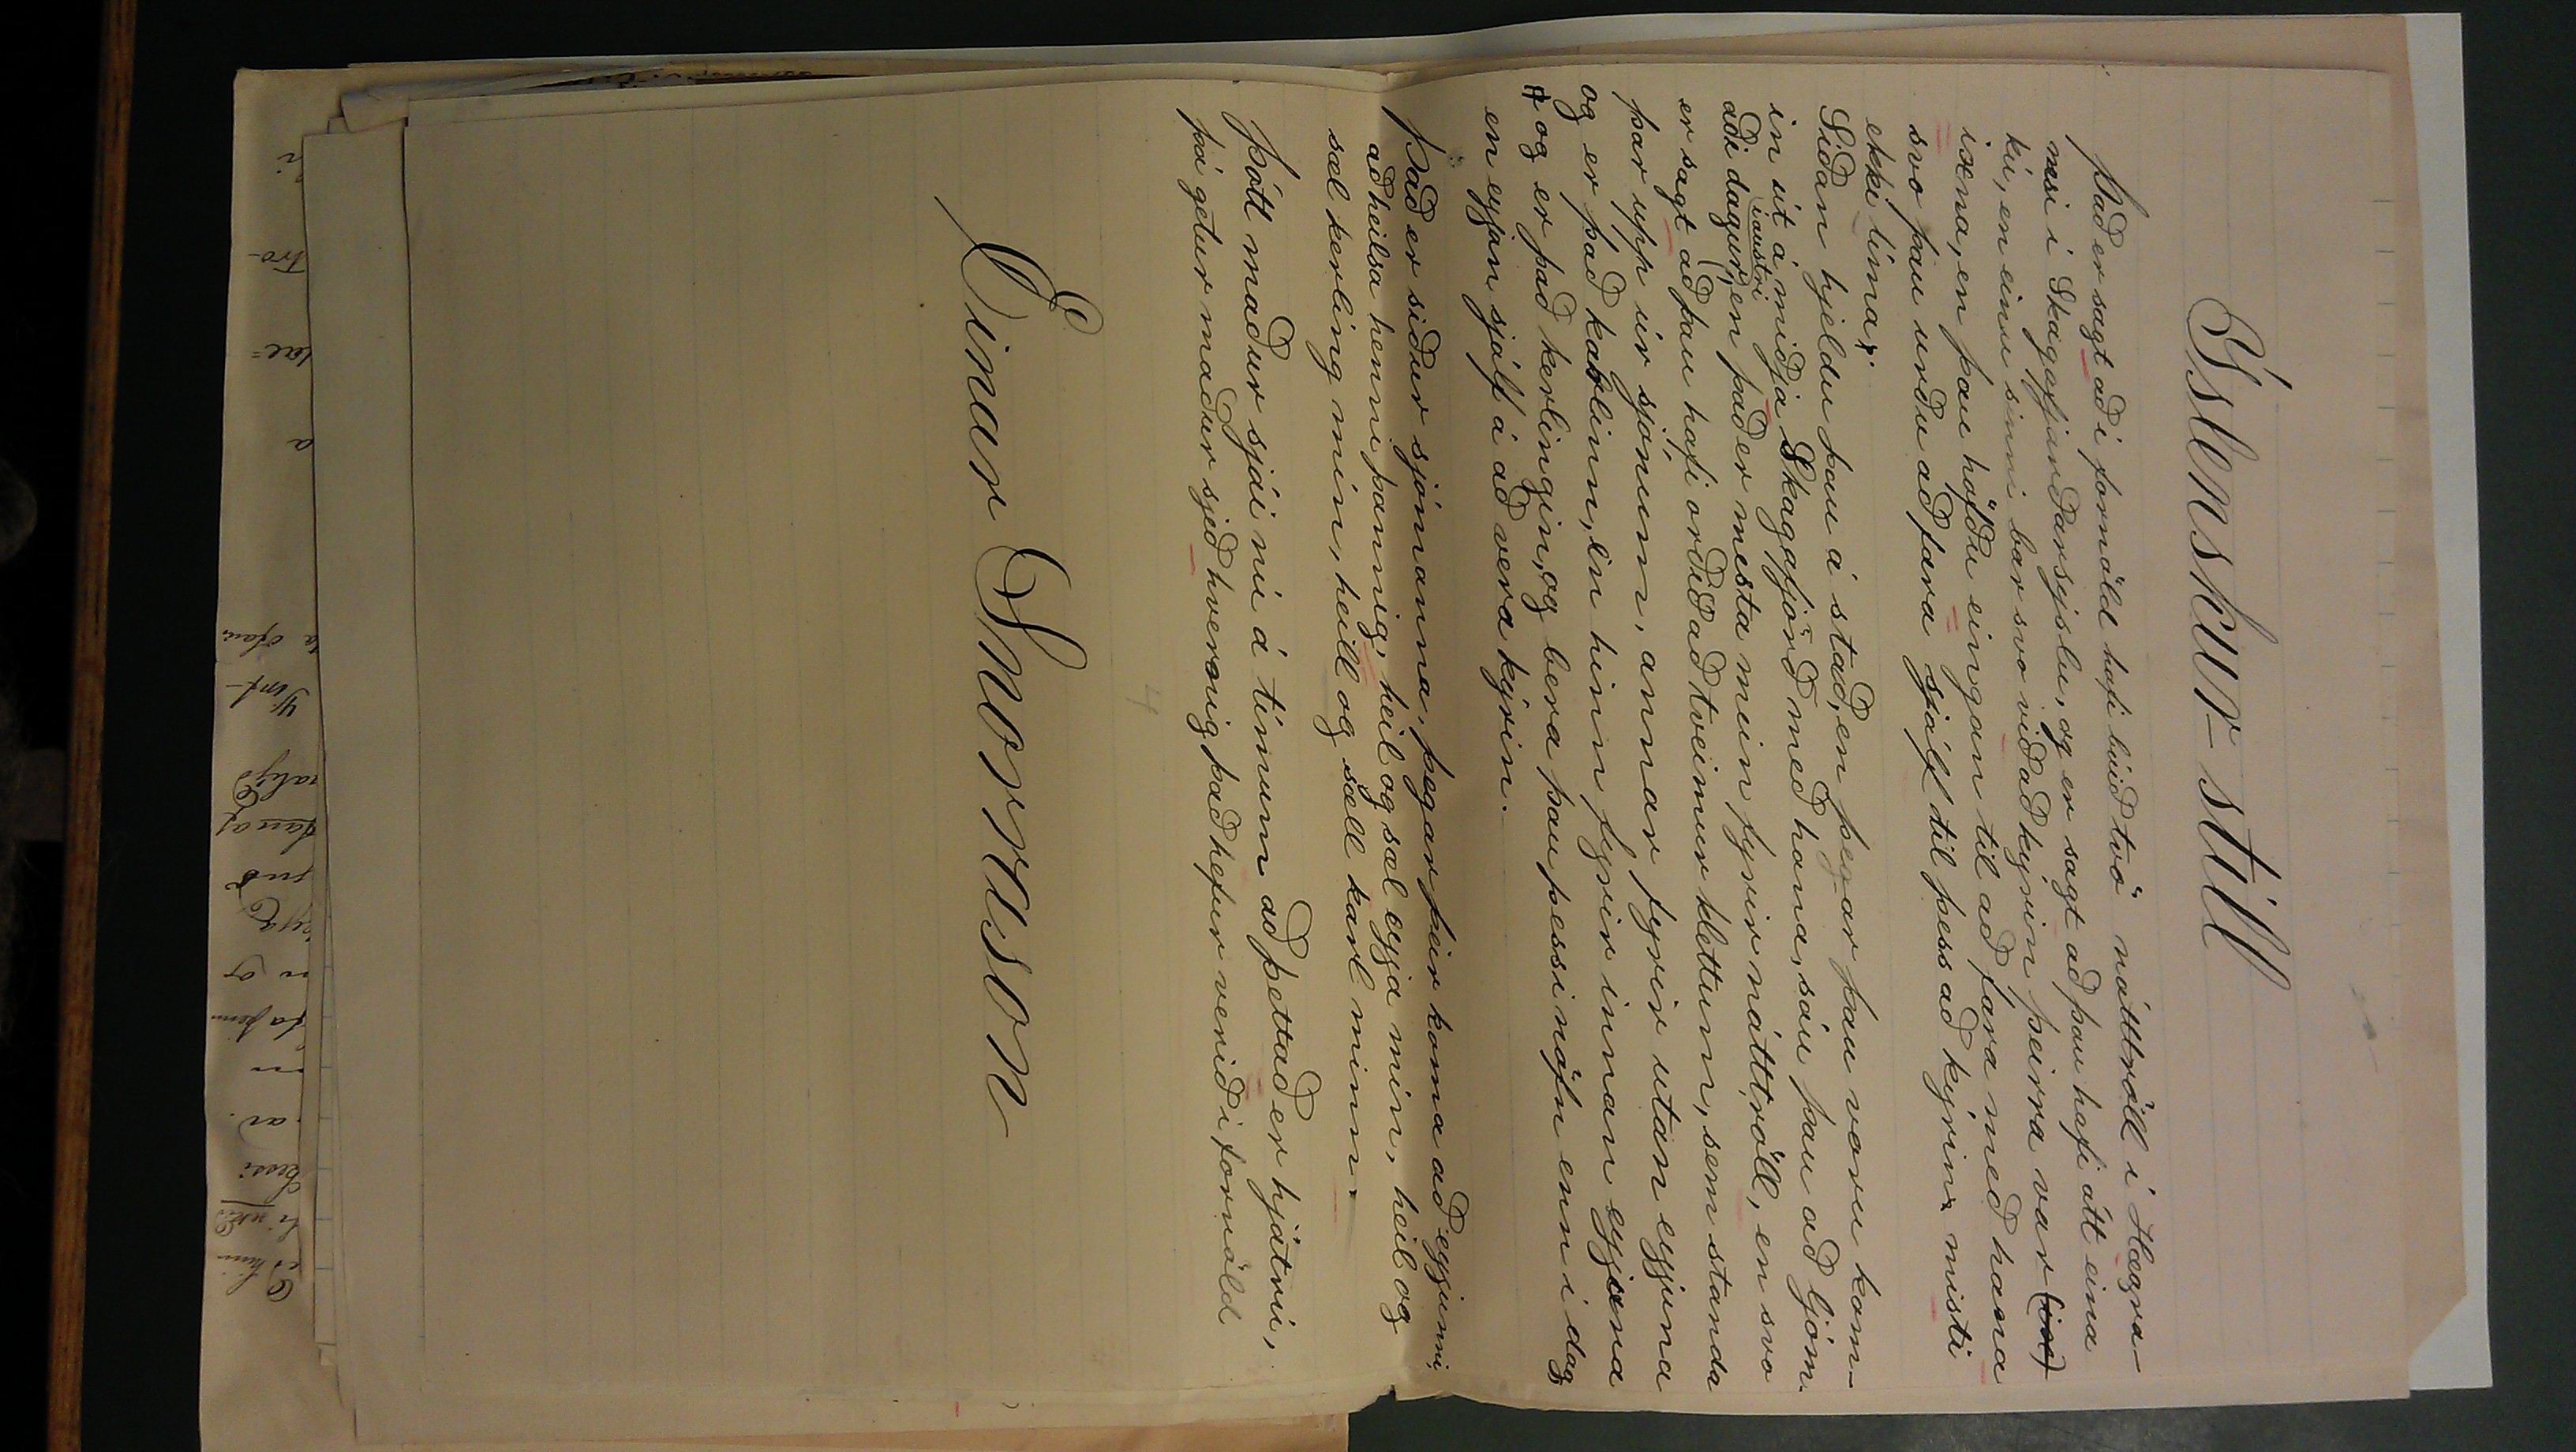 Íslenskur-stíll
Það er sagt að í fornöld hafi búið tvö náttröll í Hegra-
nesi í Skagafjarðarsýslu, og er sagt að þau hafi átt eina
kú, en einu sinni bar svo við að kýrin þeirra var (in)
ixna, en þau höfðu eingan til að fara með hana
svo þau urðu að fara sjálf til þess að kýrin misti
ekki líma.
Síðan hjeldu þau á stað, en þegar þau voru kom-
in út á miðja Skagafjörð með hana, sáu þau að ljóm-
aði dagur í austri, en það er mesta mein fyrir náttröll, en svo
er sagt að þau hafi orðið að tveimur klettum, sem standa
þar upp úr sjónum, annar fyrir utan eyjuna
og er það karlinn, en hinn fyrir innan eyjuna
og er það kerlingin, og bera þau þessi nöfn enn í dag
en eyjan sjálf á að vera kýrin.
Það er siður sjómanna, þegar þeir koma að eyjunni,
að heilsa henni þannig, heil og sæl eyja mín, heil og
sæl kerling mín, heill og sæll karl minn.
Þótt maður sjái nú á tímum að þettað er hjátrú,
þá getur maður sjeð hvernig það hefur verið í fornöld
4
Einar Snorrason